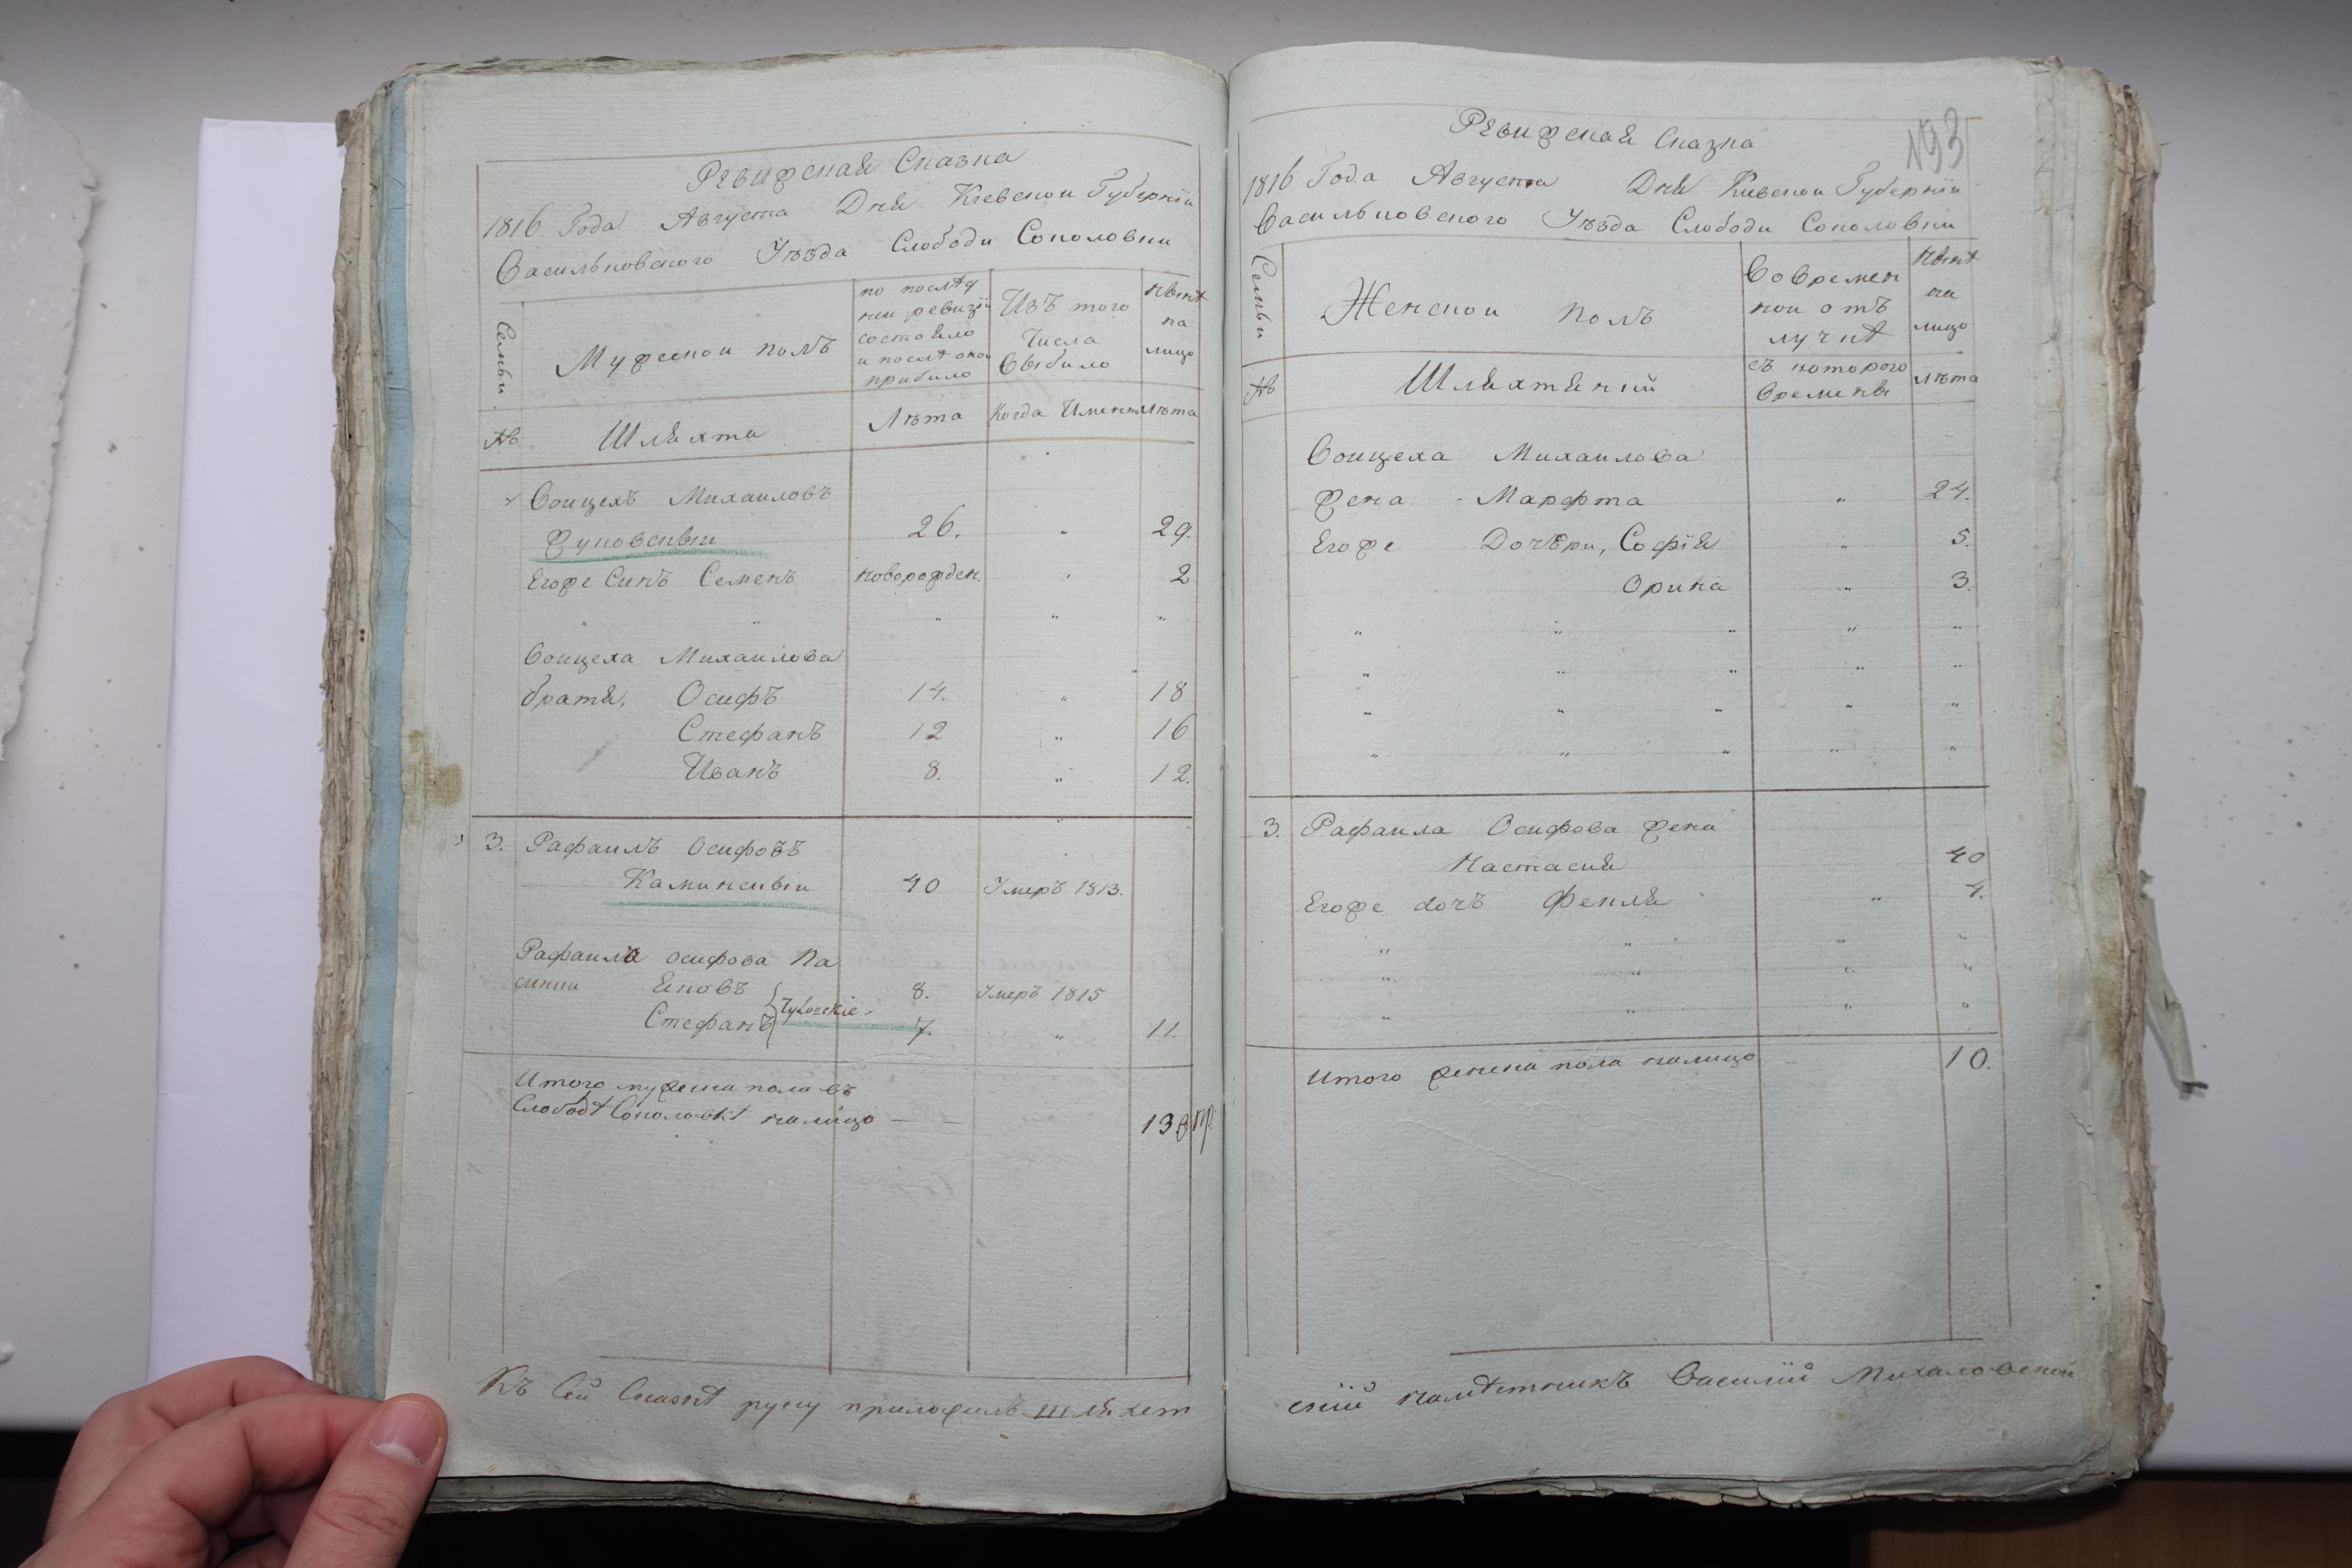 Ревижская Сказка
1816 Года Августа Дня Кіевскои Губерніи
Васильковского Уѣзда Слободи Соколовки
Семьи
Мужескои полъ
по послѣд
неи ревизіи
состояло
и послѣ оно
прибило
Изъ того
Числа
Выбило
Нынѣ
на
лицо
№
Шляхта
Лѣта
Когда Именно
Лѣта
Воицехъ Михаиловъ
Жуковскіи 26. " 29.
Егоже Синъ Семенъ новорожден. " 2
" " " " "
Воицеха Михаилова
братя, Осифъ 14. " 18
Стефанъ 12 " 16
Иванъ 8. " 12.
3. Рафаилъ Осифовъ
Каминскіи 40 Умеръ 1813.
Рафаила осифова Па
синки Яковъ 8. Умеръ 1815
Стефанъ 7. " 11.
Итого мужеска пола въ
Слободѣ Соколовкѣ налицо — —
Къ Сей Сказкѣ руку приложилъ шляхет
193
Ревижская Сказка
1816 Года Августа Дня Киевскои Губерніи
Васильковского Уѣзда Слободи Соколовки
Семьи
Женскои полъ
Вовремен
нои отъ
лучкѣ
Нынѣ
на
лицо
№
Шляхтянки
съ которого
времены
Лѣта
Воицеха Михаилова
жена Марфта " 24.
Егоже Дочери, Софія " 5.
Орина " 3.
" " " " "
" " " " "
" " " " "
" " " " "
3. Рафаила Осифова жена
Настасия 40
Егоже дочъ Фекля " 4.
" " " "
" " " "
" " " "
Итого женска пола налицо 10.
скій намѣстникъ Василій Михаловскій